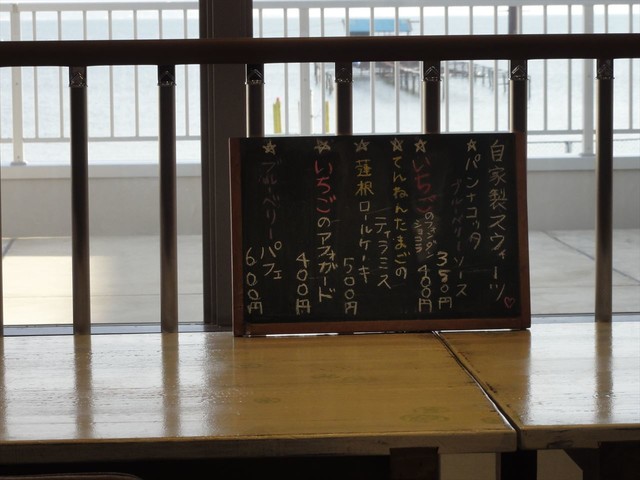 自家製スウィーツ♡
☆パンナコッタ
ブルーベリーソース
350円
☆いちごのフォンダン
ショコラ
400円
☆てんねんたまごの
ティラミス
☆蓮根ロールケーキ
500円
☆いちごのアフォガード
400円
☆ブルーベリー
パフェ
600円